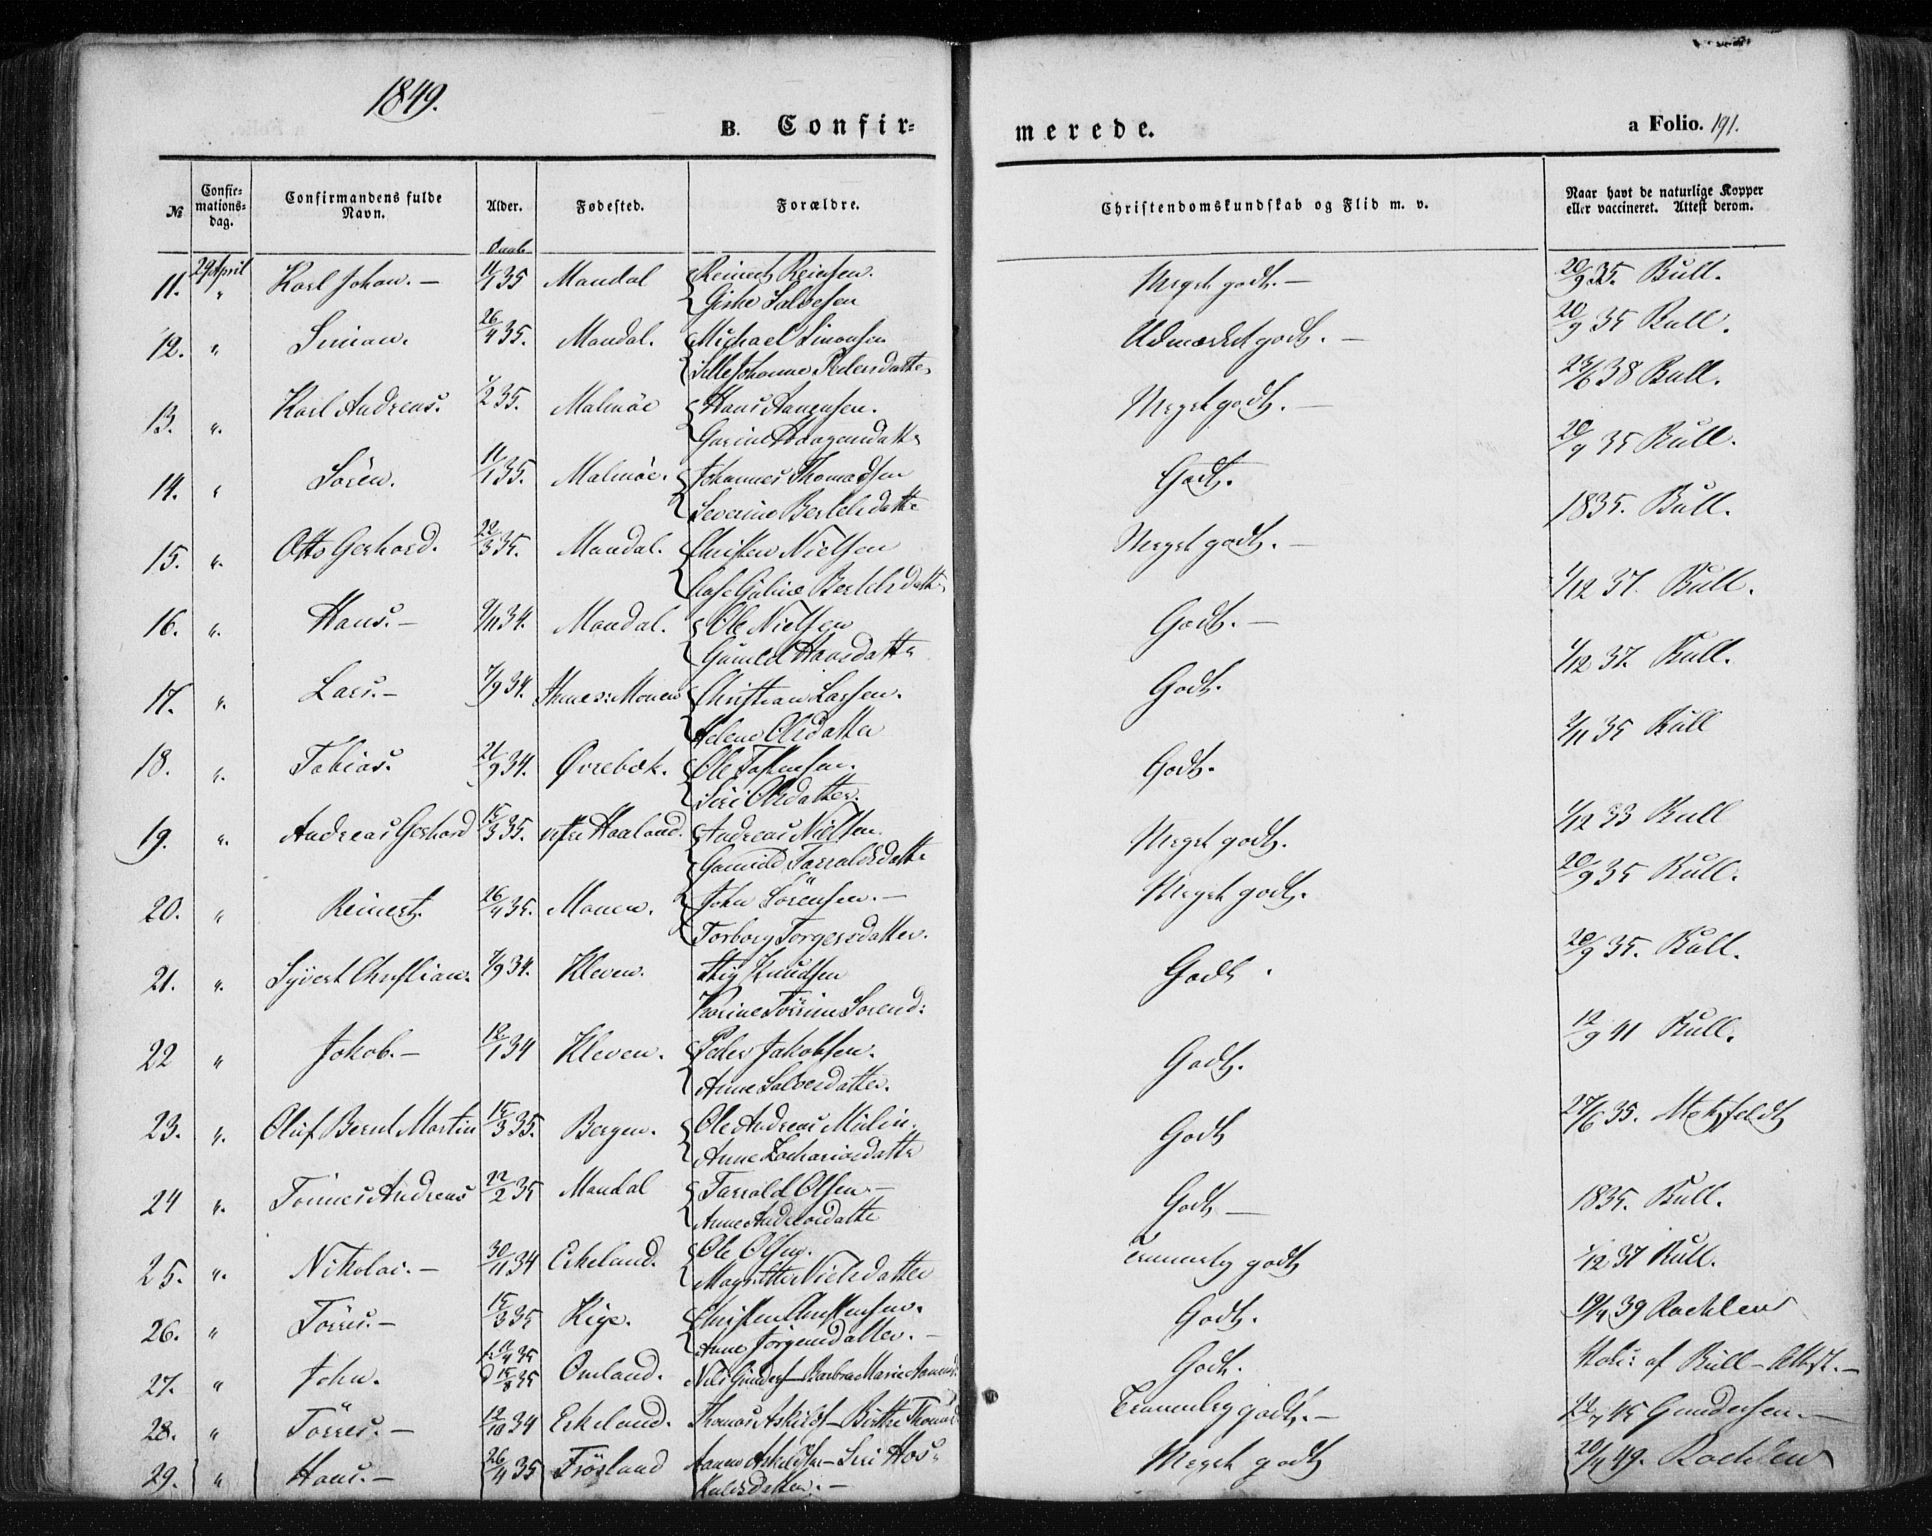 1849.
B. Confir=
merede.
a Folio. 191.
No
Confir=
mations=
dag.
Confirmandens fulde
Navn.
Alder.
Fødested.
Forældre.
Christendomskundskab og Flid m. v.
Naar havt de naturlige Kopper
eller vaccineret. Attest derom.
11. 29 April " Karl Johan. — 11/4 35 Mandal Reinert Reiersen. Meget godt. — 20/9 35. Bull.
Giske Salvesen
12. " Simon. 26/4 35. Mandal. Michael Simonsen Udmærket godt. — 20/9 35 Bull.
Sille Johanne Pedersdatter
13. " Karl Andreas. 1/2 35. Malmöe Hans Aanensen. Meget godt. — 38 Bull.
14. " Sören. 11/1 35. Malmöe. Johannes Thomassen Godt. 20/9 35 Bull.
Severine Bertelsdatte
15. " Otto Gerhard. 22/3 35. Mandal. Christen Nielsen Meget godt. — 1835. Bull.
Bertelsdatte
16. " Hans. — 9/11 34. Mandal. Ole Nielsen Godt. — 1/12 37. Bull.
Gunild Hansdatte
17. " Lars. — 7/9 34. Monen Christian Larsen. Godt. 1/12 37. Bull.
Helene Olsdatter
18. " Tobias. 21/9 34. Øvrebøk. Ole Godt. 2/11 35 Bull
Siri Olsdatter.
19. " Andreas Gerhard 15/3 35. Haaland. Andreas Nielsen. Meget godt. 1/12 33 Bull
Gunild Tarraldsdatte
20. " Reinert. 26/4 35. Monen. John Sörensen. — Meget godt. 20/9 35 Bull.
Torborg Torgersdatter.
21. " Syvert Christian. 7/9 34. Kleven. Stig Knudsen Godt. 20/9 35. Bull.
Karine Sorend:
22 " Jakob. — 12/1 34 Kleven. Peder Jakobsen. Godt. 12/9 41 Bull.
Anne Salvesdatter.
23. " Oluf Bernt Martin 15/3 35. Bergen. Ole Andreas Godt 27/6 35.
Anne Zachariasdatte
24 " Tönnes Andreas 22/2 35 Mandal Tarrald Olsen — Godt — 1835. Bull.
Anne Andreasdatte
25. " Nikolai. — 30/11 34 Eikeland. Ole Olsen. Temmelig godt 1/12 37 Bull.
Nielsdatter
26. " Törres. — 15/3 35 Kige. Christen Christensen. Godt. 19/4 39
Anne Jörgensdatter. —
27. " John. Omland. Niels Gunders — Barbra Marie Godt. af Bull — Attest. —
28. " Törres. — 12/10 34 Eikeland. Thomas Askilds — Birthe Temmelig godt. — 22/7 45 Gundersen. —
29. " Hans. — 26/4 35 Frösland Aanen Askildsen — Siri Meget godt 20/4 49.